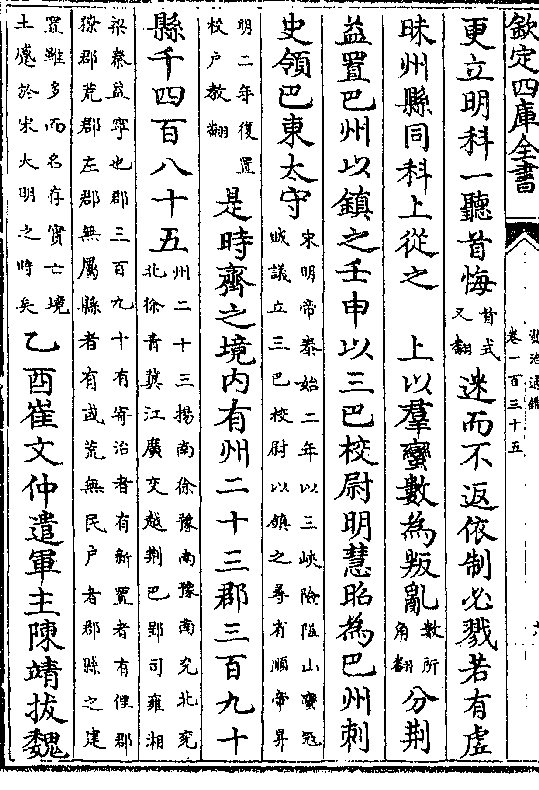 欽定四庫全書
資治通鑑
卷一百三十五
更立明科一聽首悔首式又翻迷而不返依制必戮若有虛
昧州縣同科上從之　上以羣蠻數為叛亂數所角翻分荆
益置巴州以鎮之壬申以三巴校尉明慧昭為巴州刺
史領巴東太守宋明帝泰始二年以三峽險隘山蠻寇賊議立三巴校尉以鎮之尋省順帝昇
明二年復置校户教翻是時齊之境内有州二十三郡三百九十
縣千四百八十五州二十三揚南徐豫南豫南兖北兖北徐青冀江廣交越荆巴郢司雍湘
梁秦益寧也郡三百九十有寄治者有新置者有俚郡獠郡荒郡左郡無屬縣者有或荒無民户者郡縣之建
置雖多而名存實亡境土蹙於宋大明之時矣乙酉崔文仲遣軍主陳靖拔魏